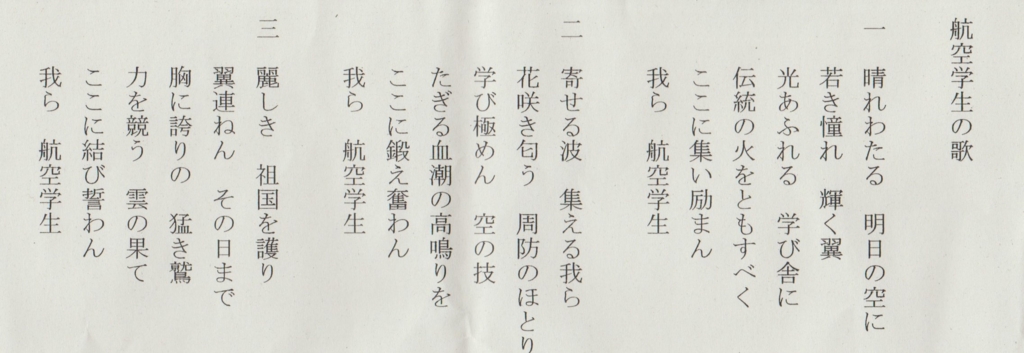 航空学生の歌
一 晴れわたる 明日の空に
若き憧れ 輝く翼
光あふれる 学び舎に
伝統の火をともすべく
ここに集い励まん
我ら 航空学生
二 寄せる波 集える我ら
花咲き匂う 周防のほとり
学び極めん 空の技
たぎる血潮の高鳴りを
ここに鍛え奮わん
我ら 航空学生
三 麗しき 祖国を護り
翼連ねん その日まで
胸に誇りの 猛き鷲
力を競う 雲の果て
ここに結び誓わん
我ら 航空学生